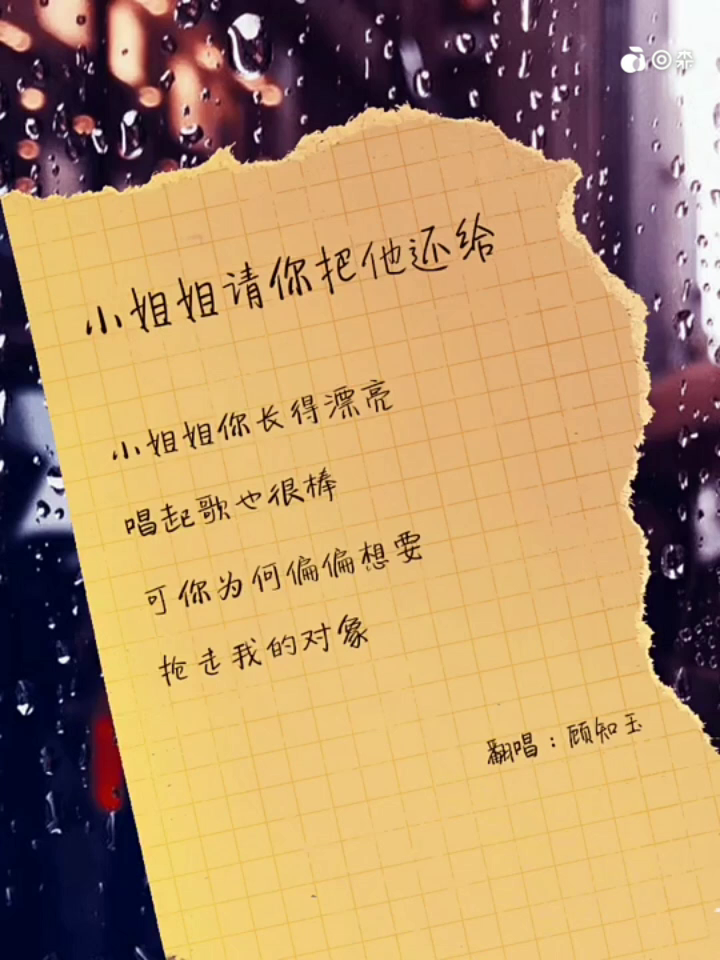 小姐姐请你把他还给
小姐姐你长得漂亮
唱起歌也很棒
可你为何偏偏想要
抢走我的对象
翻唱：顾知玉